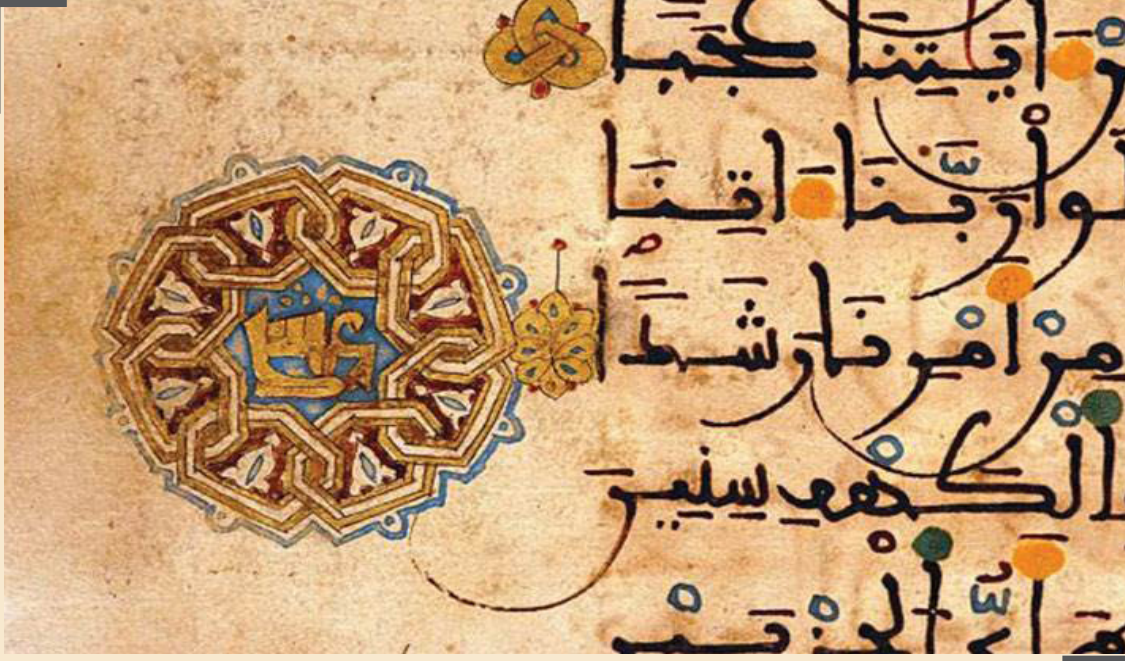 ءَايَٰتِنَا عَجَبًا
رَبَّنَا ءَاتِنَا
مِنْ أَمْرِنَا رَشَدًا
عشر
الْكَهْفِ سِنِينَ
أَيُّ الْحِزْبَيْنِ